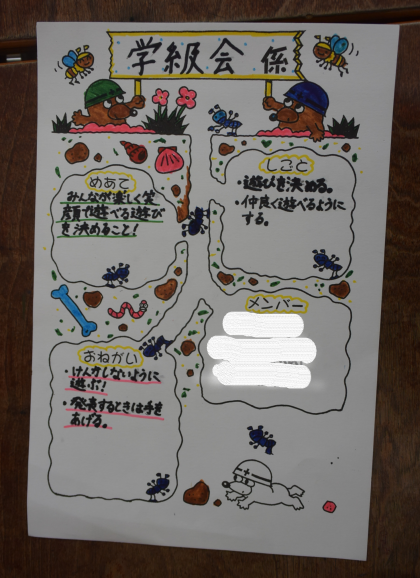 学級会 係
めあて
みんなが楽しく笑
顔で遊べる遊び
を決めること!
しごと
・遊びを決める。
・仲良く遊べるように
する。
メンバー
おねがい
・けんかしないように
遊ぶ!
・発表するときは手を
あげる。